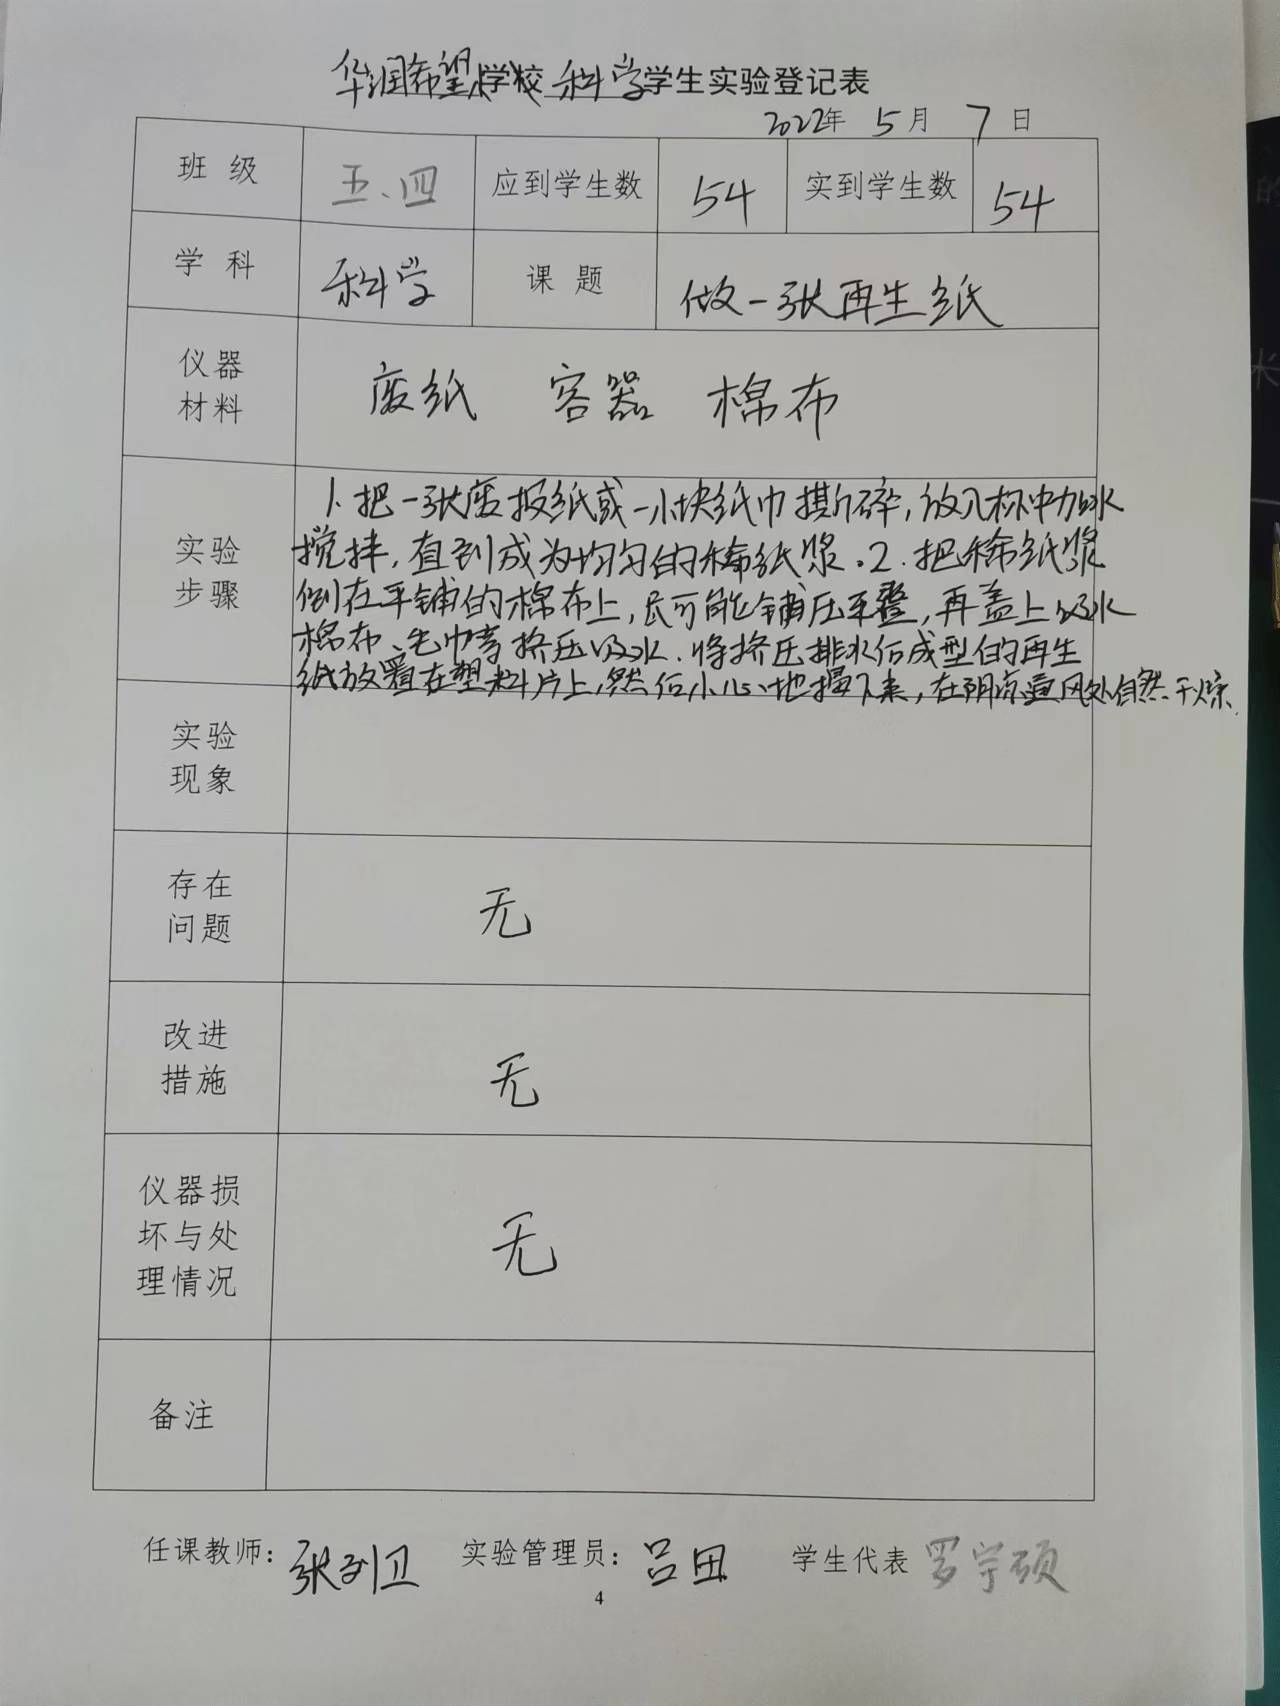 华润希望小学校 科学学生实验登记表
2022年 5月 7日
班级 五.四 应到学生数 54 实到学生数 54
学科 科学 课题 做一张再生纸
仪器
材料
废纸 容器 棉布
实验
步骤
1. 把一张废报纸或一小块纸巾撕碎,放入杯中加水
搅拌,直到成为均匀的稀纸浆.2.把稀纸浆
倒在平铺的棉布上,尽可能铺压平叠,再盖上吸水
棉布、毛巾等挤压吸水.将挤压排水后成型的再生
纸放置在塑料片上,然后小心地揭下来,在阴凉通风处自然干燥.
实验
现象
存在
问题
无
改进
措施
无
仪器损
坏与处
理情况
无
备注
任课教师: 张 卫 实验管理员: 吕田 学生代表 罗宇硕
4